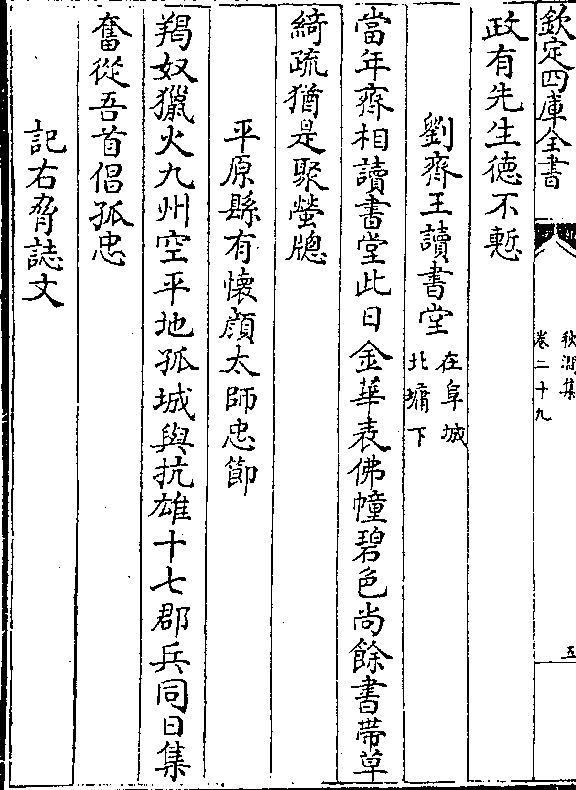 欽定四庫全書
秋澗集
卷二十九
五
政有先生德不慙
劉齊王讀書堂 在阜城北墉下
當年齊相讀書堂此日金華表佛幢碧色尚餘書帶草
綺疏猶是聚螢牕
平原縣有懷顔太師忠節
羯奴獵火九州空平地孤城與抗雄十七郡兵同日集
奮從吾首倡孤忠
記右脅誌文